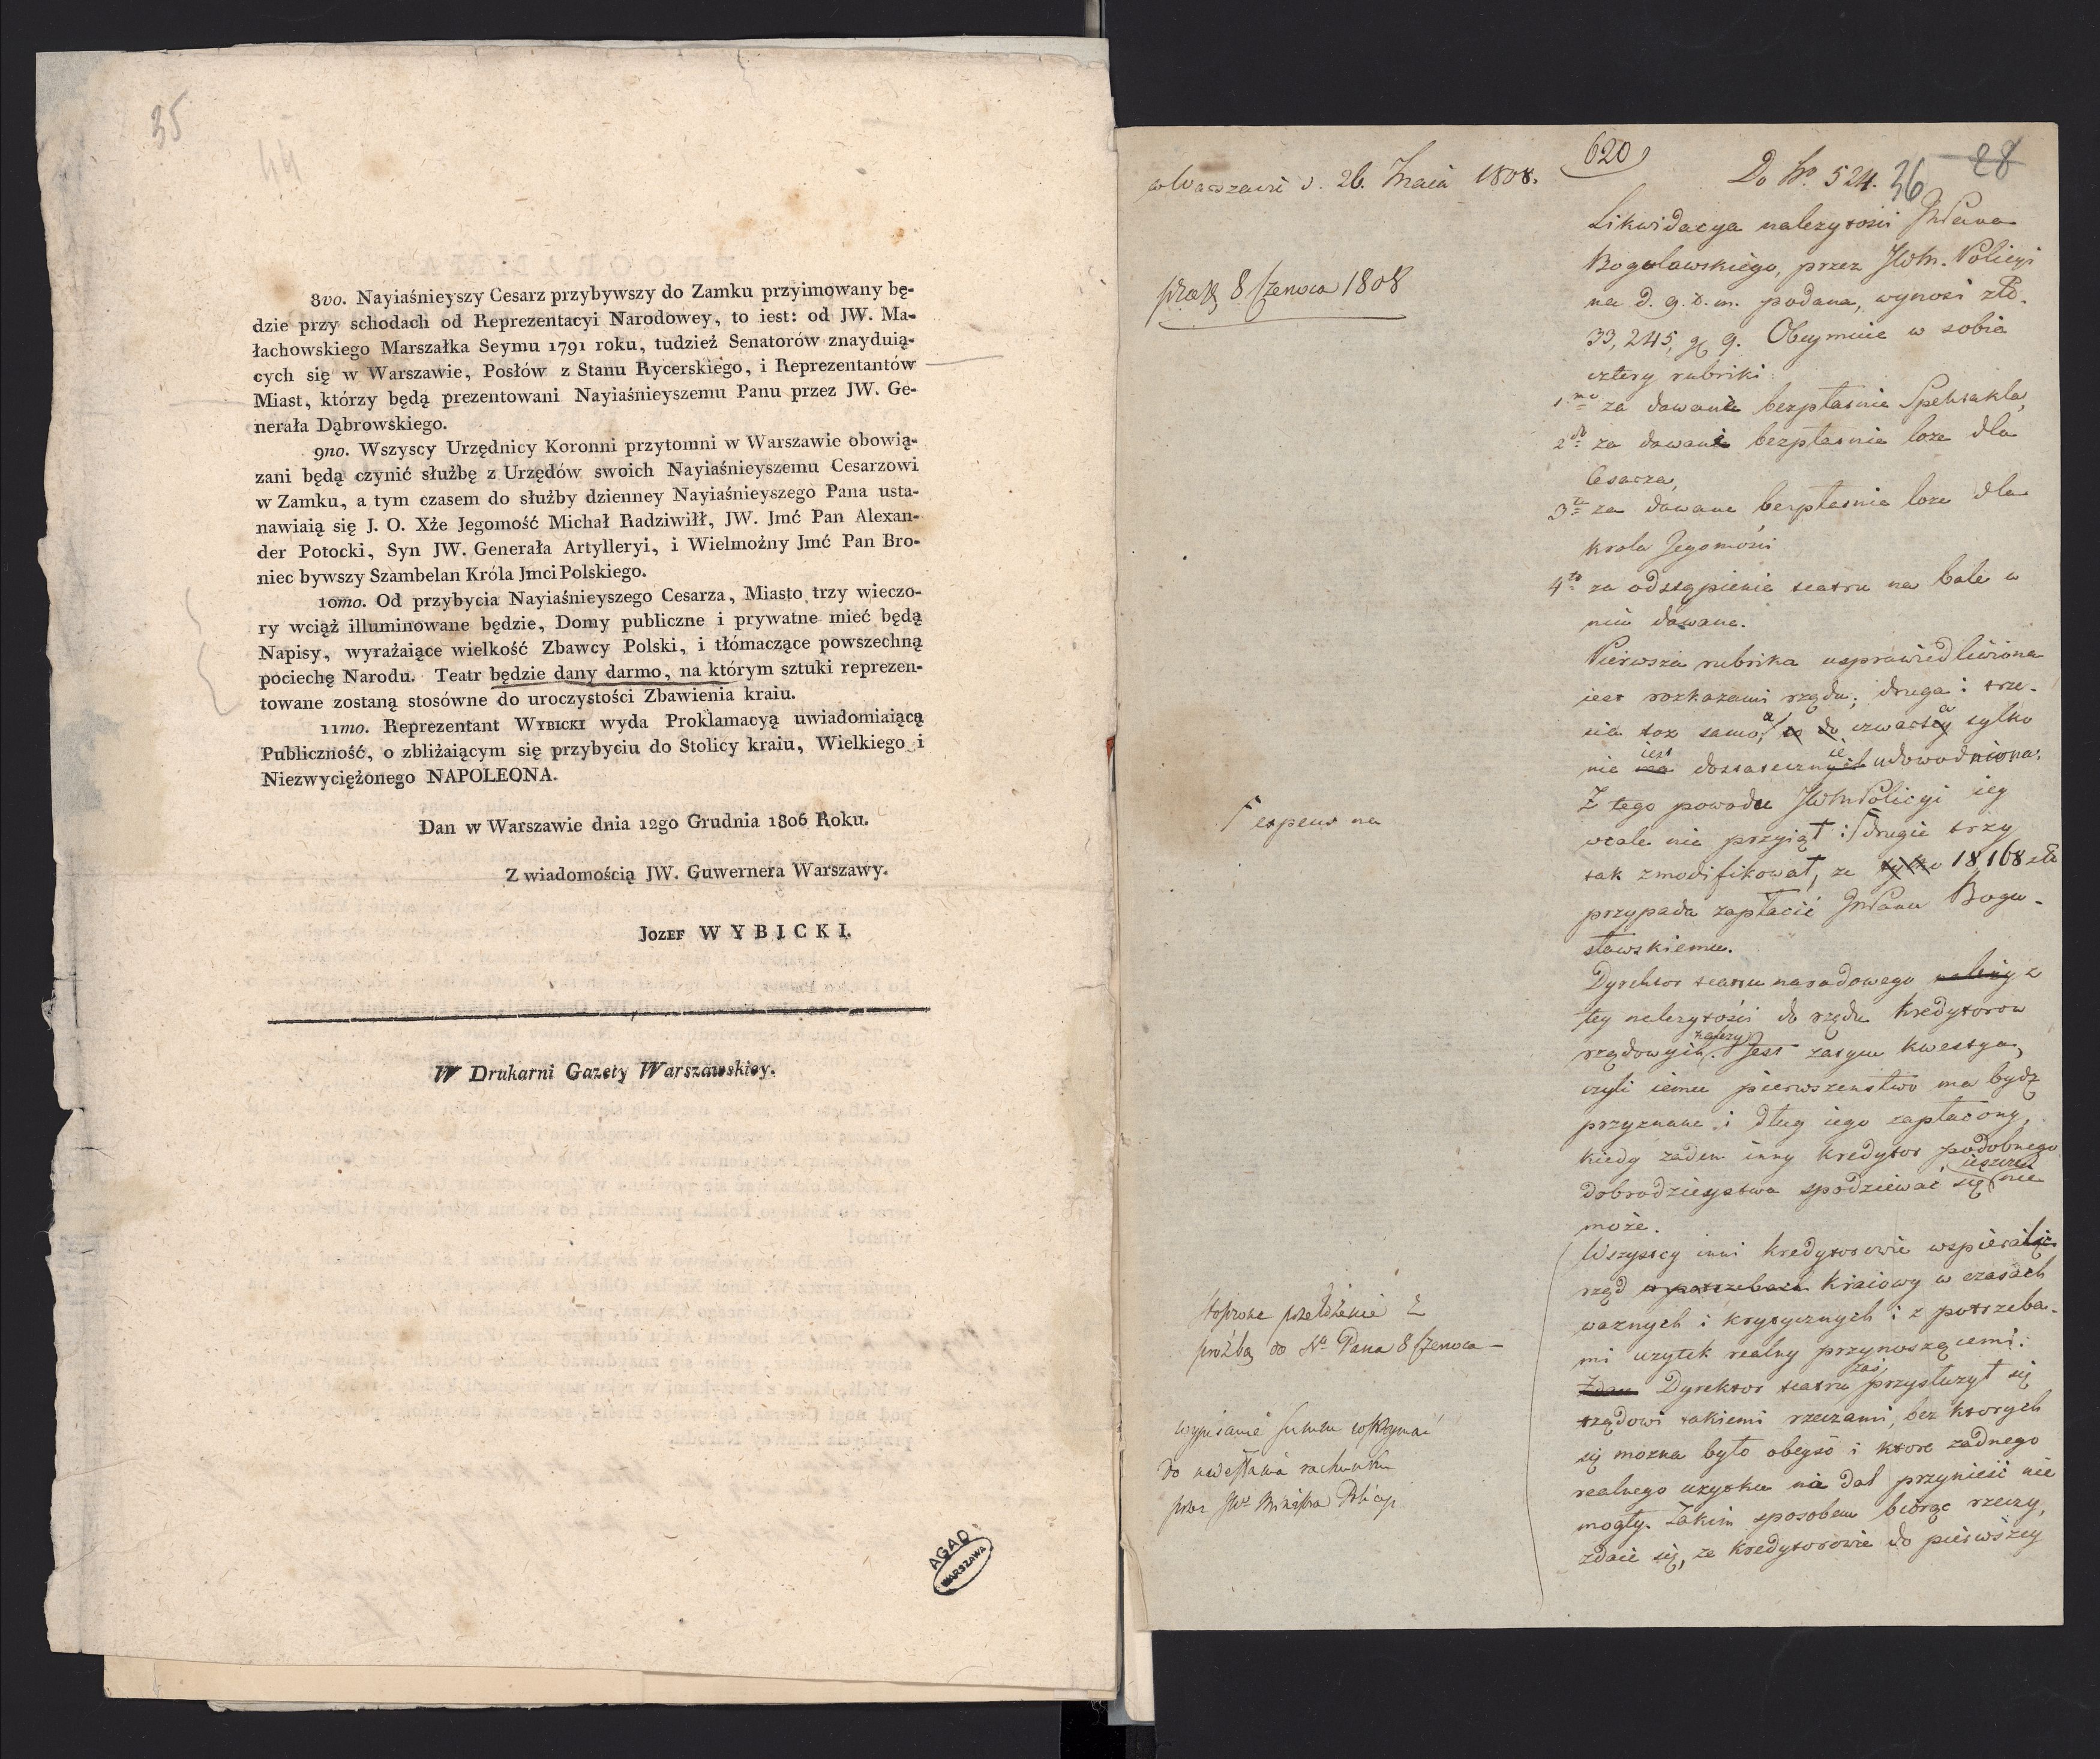 35
44
8vo. Nayiaśnieyszy Cesarz przybywszy do Zamku przyimowany bę-
dzie przy schodach od Reprezentacyi Narodowey, to iest: od JW. Ma-
łachowskiego Marszałka Seymu 1791 roku, tudzież Senatorów znayduią-
cych się w Warszawie, Posłów z Stanu Rycerskiego, i Reprezentantów
Miast, którzy będą prezentowani Nayiaśnieyszemu Panu przez JW. Ge-
nerała Dąbrowskiego.
9no. Wszyscy Urzędnicy Koronni przytomni w Warszawie obowią-
zani będą czynić służbę z Urzędów swoich Nayiaśnieyszemu Cesarzowi
w Zamku, a tym czasem do służby dzienney Nayiaśnieyszego Pana usta-
nawiaią się J. O. Xże Jegomość Michał Radziwiłł, JW. Jmć Pan Alexan-
der Potocki, Syn JW. Generała Artylleryi, i Wielmożny Jmć Pan Bro-
niec bywszy Szambelan Króla Jmci Polskiego.
10mo. Od przybycia Nayiaśnieyszego Cesarza, Miasto trzy wieczo-
ry wciąż illuminowane będzie, Domy publiczne i prywatne mieć będą
Napisy, wyrażaiące wielkość Zbawcy Polski, i tłómaczące powszechną
pociechę Narodu. Teatr będzie dany darmo, na którym sztuki reprezen-
towane zostaną stosówne do uroczystości Zbawienia kraiu.
11mo. Reprezentant WYBICKI wyda Proklamacyą uwiadomiaiącą
Publiczność, o zbliżaiącym się przybyciu do Stolicy kraiu, Wielkiego i
Niezwyciężonego NAPOLEONA.
Dan w Warszawie dnia 12go Grudnia 1806 Roku.
Z wiadomością JW. Guwernera Warszawy.
JOZEF WYBICKI.
W Drukarni Gazety Warszawskiey.
AGAD
WARSZAWA
w Warszawie d. 26. Maia 1808.
620
Do No. 524.
36
28
8 Czerwca 1808
Likwidacya należytości JmPana
Bogulawskiego, przez JWM. Policyi
na d. 9. t. m. podana, wynosi złp.
33,245, gr 9. Obeymuie w sobie
cztery rubriki:
1mo za dawanie bezpłatnie Spektakla,
2do za dawanie bezpłatnie loże dla
Cesarza,
3tio za dawane bezpłatnie loże dla
Krola Jegomości
4to za odstąpienie teatru na bale w
nim dawane.
Pierwsza rubrika usprawiedliwiona
iest rozkazami rządu; druga i trze-
cia toż samo, a czwarta tylko
nie iest dostatecznie udowodniona.
Z tego powodu JWMPolicyi iey
wcale nie przyiął i drugie trzy
tak zmodifikował, że tylko 18,168 zł
przypada zapłacić JmPanu Bogu-
sławskiemu.
Dyrektor teatru narodowego należy z
tey należytości do rzędu kredytorow
rządowych. należy Jest zatym kwestya,
czyli iemu pierwszenstwo ma bydź
przyznane i dług iego zapłacony,
kiedy żaden inny kredytor podobnego
dobrodzieystwa spodziewać się ieszcze nie
może.
Wszyscy inni kredytorowie wspierali
rząd w potrzebach kraiowy w czasach
ważnych i krytycznych i z potrzeba-
mi użytek realny przynoszącemi.
Dyrektor teatru zaś przysłużył się
rządowi takiemi rzeczami, bez ktorych
się można było obeyść i ktore żadnego
realnego użytku nie dał przynieść nie
mogły. Takim sposobem biorąc rzeczy,
zdaie się, że kredytorowie do pierwszey
expens na
Stosowne przełożenie z
proźbą do Na Pana 8 Czerwca -
wypisanie summ wstrzymać
do nadesłania rachunku
przez JWo Ministra Policyi